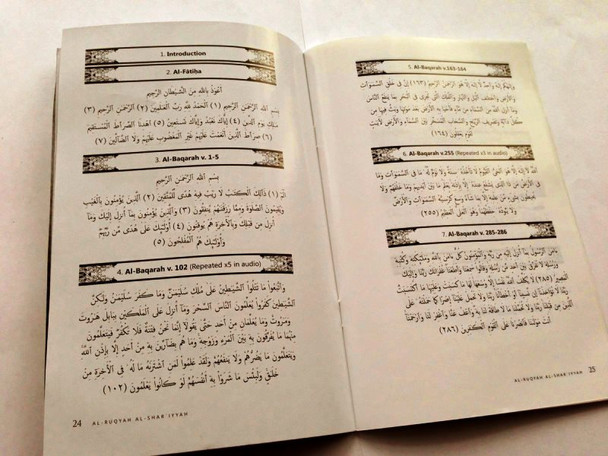 1. Introduction
2. Al-Fātiḥa
أَعُوذُ بِاللهِ مِنَ الشَّيْطَانِ الرَّجِيمِ
بِسْمِ اللهِ الرَّحْمَنِ الرَّحِيمِ (١) الْحَمْدُ لِلَّهِ رَبِّ الْعَلَمِينَ (٢) الرَّحْمَنِ الرَّحِيمِ (٣)
مَلِكِ يَوْمِ الدِّينِ (٤) إِيَّاكَ نَعْبُدُ وَإِيَّاكَ نَسْتَعِينُ (٥) اهْدِنَا الصِّرَاطَ الْمُسْتَقِيمَ
(٦) صِرَاطَ الَّذِينَ أَنْعَمْتَ عَلَيْهِمْ غَيْرِ الْمَغْضُوبِ عَلَيْهِمْ وَلَا الضَّالِّينَ (٧)
3. Al-Baqarah v. 1-5
بِسْمِ اللهِ الرَّحْمَنِ الرَّحِيمِ
الٓمٓ (١) ذَلِكَ الْكِتَبُ لَا رَيْبَ فِيهِ هُدًى لِّلْمُتَّقِينَ (٢) الَّذِينَ يُؤْمِنُونَ بِالْغَيْبِ
وَيُقِيمُونَ الصَّلَوٰةَ وَمِمَّا رَزَقْنَهُمْ يُنفِقُونَ (٣) وَالَّذِينَ يُؤْمِنُونَ بِمَا أُنزِلَ إِلَيْكَ وَمَا
أُنزِلَ مِن قَبْلِكَ وَبِالْآخِرَةِ هُمْ يُوقِنُونَ (٤) أُوْلَٰئِكَ عَلَىٰ هُدًى مِّن رَّبِّهِمْ
وَأُوْلَٰئِكَ هُمُ الْمُفْلِحُونَ (٥)
4. Al-Baqarah v. 102 (Repeated x5 in audio)
وَاتَّبَعُوا مَا تَتْلُوا الشَّيَطِينُ عَلَىٰ مُلْكِ سُلَيْمَنَ وَمَا كَفَرَ سُلَيْمَنُ وَلَكِنَّ
الشَّيَطِينَ كَفَرُوا يُعَلِّمُونَ النَّاسَ السِّحْرَ وَمَا أُنزِلَ عَلَى الْمَلَكَيْنِ بِبَابِلَ هَرُوتَ
وَمَرُوتَ وَمَا يُعَلِّمَانِ مِنْ أَحَدٍ حَتَّىٰ يَقُولَا إِنَّمَا نَحْنُ فِتْنَةٌ فَلَا تَكْفُرْ فَيَتَعَلَّمُونَ
مِنْهُمَا مَا يُفَرِّقُونَ بِهِ بَيْنَ الْمَرْءِ وَزَوْجِهِ وَمَا هُم بِضَارِّينَ بِهِ مِنْ أَحَدٍ إِلَّا بِإِذْنِ اللهِ
وَيَتَعَلَّمُونَ مَا يَضُرُّهُمْ وَلَا يَنفَعُهُمْ وَلَقَدْ عَلِمُوا لَمَنِ اشْتَرَىٰهُ مَا لَهُ فِي الْآخِرَةِ مِنْ
خَلَٰقٍ وَلَبِئْسَ مَا شَرَوْا بِهِ أَنفُسَهُمْ لَوْ كَانُوا يَعْلَمُونَ (١٠٢)
24 AL-RUQYAH AL-SHARʿIYYAH
5. Al-Baqarah v.163-164
وَإِلَهُكُمْ إِلَهٌ وَحِدٌ لَّا إِلَهَ إِلَّا هُوَ الرَّحْمَنُ الرَّحِيمُ (١٦٣) إِنَّ فِي خَلْقِ السَّمَوَاتِ
وَالْأَرْضِ وَاخْتِلَفِ الَّيْلِ وَالنَّهَارِ وَالْفُلْكِ الَّتِي تَجْرِي فِي الْبَحْرِ بِمَا يَنفَعُ النَّاسَ
وَمَا أَنزَلَ اللهُ مِنَ السَّمَاءِ مِن مَّاءٍ فَأَحْيَا بِهِ الْأَرْضَ بَعْدَ مَوْتِهَا وَبَثَّ فِيهَا مِن
كُلِّ دَابَّةٍ وَتَصْرِيفِ الرِّيَحِ وَالسَّحَابِ الْمُسَخَّرِ بَيْنَ السَّمَاءِ وَالْأَرْضِ لَآيَتٍ
لِّقَوْمٍ يَعْقِلُونَ (١٦٤)
6. Al-Baqarah v.255 (Repeated x3 in audio)
اللهُ لَا إِلَهَ إِلَّا هُوَ الْحَيُّ الْقَيُّومُ لَا تَأْخُذُهُ سِنَةٌ وَلَا نَوْمٌ لَّهُ مَا فِي السَّمَوَاتِ وَمَا
فِي الْأَرْضِ مَن ذَا الَّذِي يَشْفَعُ عِندَهُ إِلَّا بِإِذْنِهِ يَعْلَمُ مَا بَيْنَ أَيْدِيهِمْ وَمَا خَلْفَهُمْ وَلَا
يُحِيطُونَ بِشَيْءٍ مِّنْ عِلْمِهِ إِلَّا بِمَا شَاءَ وَسِعَ كُرْسِيُّهُ السَّمَوَاتِ وَالْأَرْضَ
وَلَا يَئُودُهُ حِفْظُهُمَا وَهُوَ الْعَلِيُّ الْعَظِيمُ (٢٥٥)
7. Al-Baqarah v. 285-286
ءَامَنَ الرَّسُولُ بِمَا أُنزِلَ إِلَيْهِ مِن رَّبِّهِ وَالْمُؤْمِنُونَ كُلٌّ ءَامَنَ بِاللهِ وَمَلَٰئِكَتِهِ وَكُتُبِهِ
وَرُسُلِهِ لَا نُفَرِّقُ بَيْنَ أَحَدٍ مِّن رُّسُلِهِ وَقَالُوا سَمِعْنَا وَأَطَعْنَا غُفْرَانَكَ رَبَّنَا وَإِلَيْكَ
الْمَصِيرُ (٢٨٥) لَا يُكَلِّفُ اللهُ نَفْسًا إِلَّا وُسْعَهَا لَهَا مَا كَسَبَتْ وَعَلَيْهَا مَا اكْتَسَبَتْ
رَبَّنَا لَا تُؤَاخِذْنَا إِن نَّسِينَا أَوْ أَخْطَأْنَا رَبَّنَا وَلَا تَحْمِلْ عَلَيْنَا إِصْرًا كَمَا حَمَلْتَهُ عَلَى
الَّذِينَ مِن قَبْلِنَا رَبَّنَا وَلَا تُحَمِّلْنَا مَا لَا طَاقَةَ لَنَا بِهِ وَاعْفُ عَنَّا وَاغْفِرْ لَنَا وَارْحَمْنَا
أَنتَ مَوْلَنَا فَانصُرْنَا عَلَى الْقَوْمِ الْكَفِرِينَ (٢٨٦)
AL-RUQYAH AL-SHARʿIYYAH 25